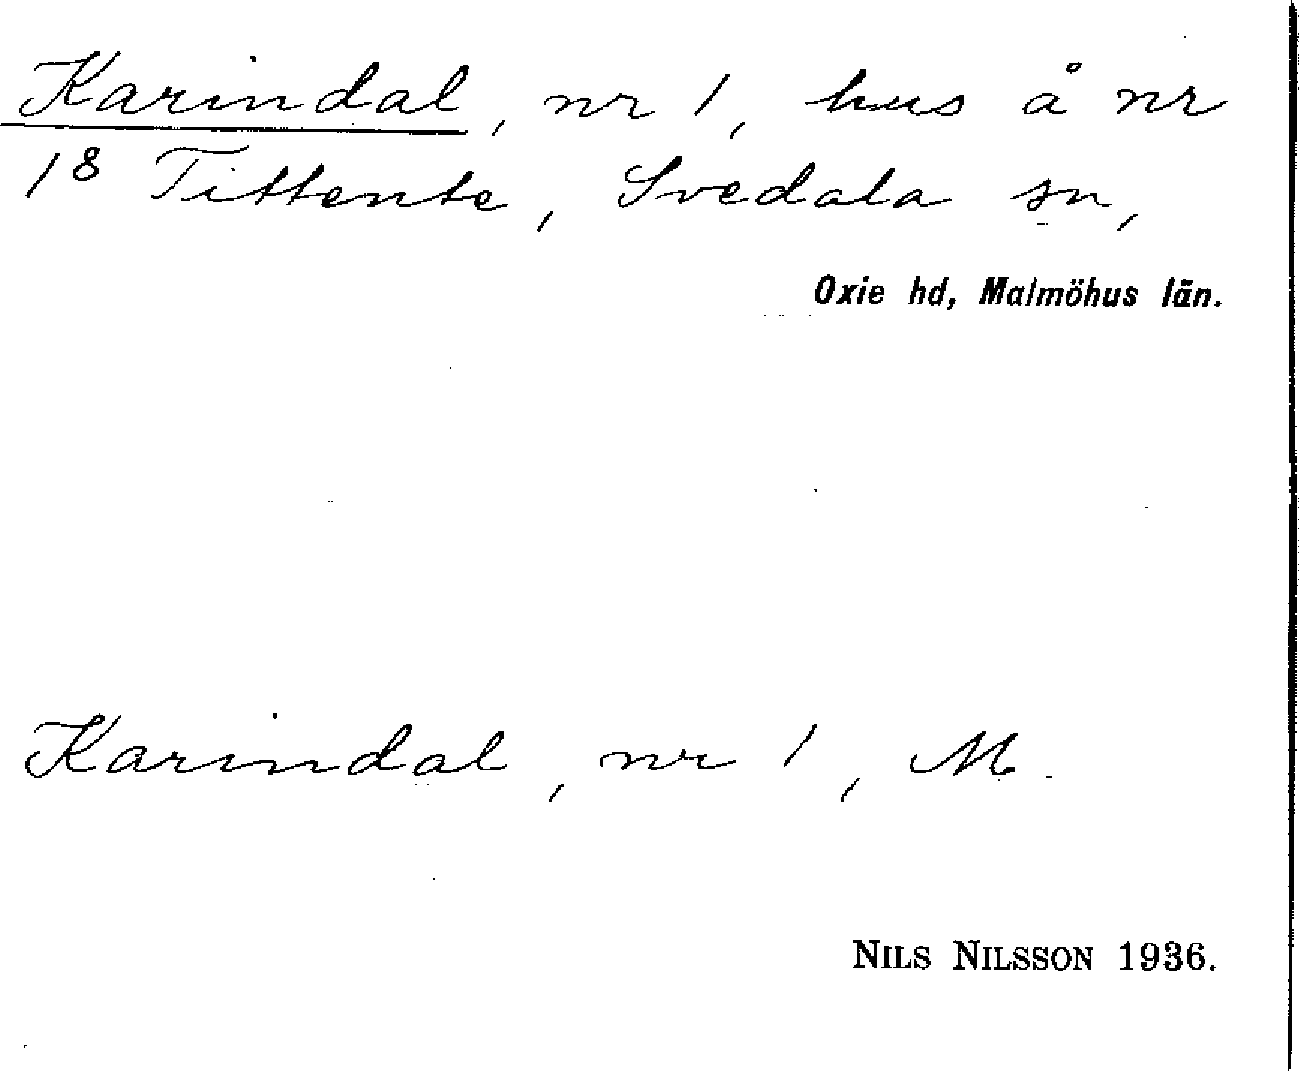 Karindal, nr 1, hus å nr
18 Tittente, Svedala sn,
Oxie hd, Malmöhus län.
Karindal, nr 1, M.
NILS NILSSON 1936.